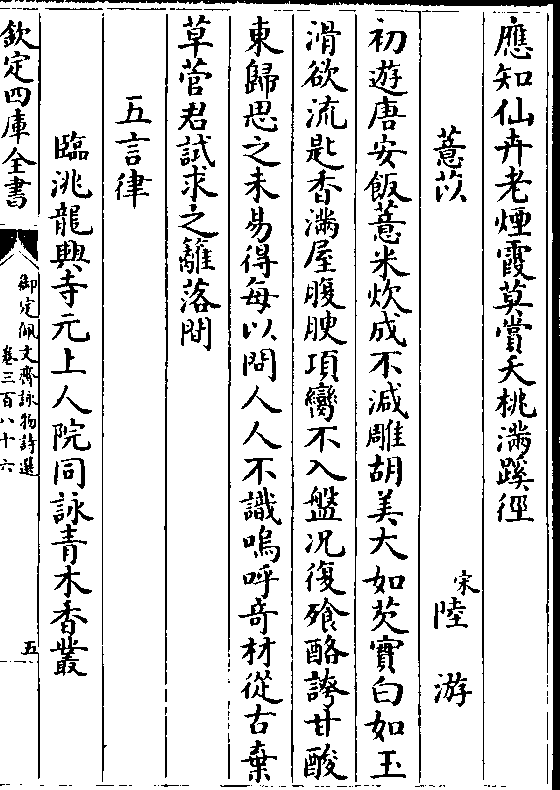 應知仙卉老煙霞莫賞夭桃滿蹊徑
薏苡
宋
陸游
初遊唐安飯薏米炊成不減雕胡美大如芡實白如玉
滑欲流匙香滿屋腹腴項臠不入盤況復飱酪誇甘酸
東歸思之未易得每以問人人不識嗚呼奇材從古棄
草菅君試求之籬落間
五言律
臨洮龍興寺元上人院同詠青木香叢
欽定四庫全書
御定佩文齋詠物詩選
卷三百八十六
五